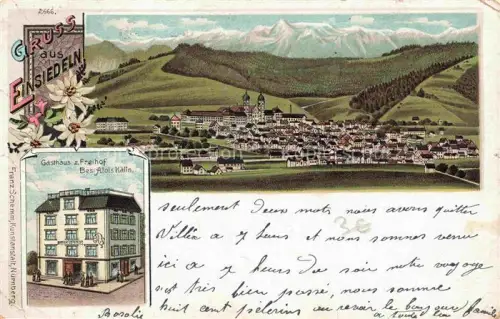 2666.
Gruss
aus
Einsiedeln
Gasthaus z. Freihof
Bes: Alois Kälin.
Franz Schemm, Kunstanstalt, Nürnberg.
seulement deux mots nous avons quitter
a 7 heurs et nous sommes venu
ici a 7 heurs du soir notre voyage
est très bien passé, nous sommes
huit cent pèlerins au revoir le bonjour
a toute la famille
Rosalie